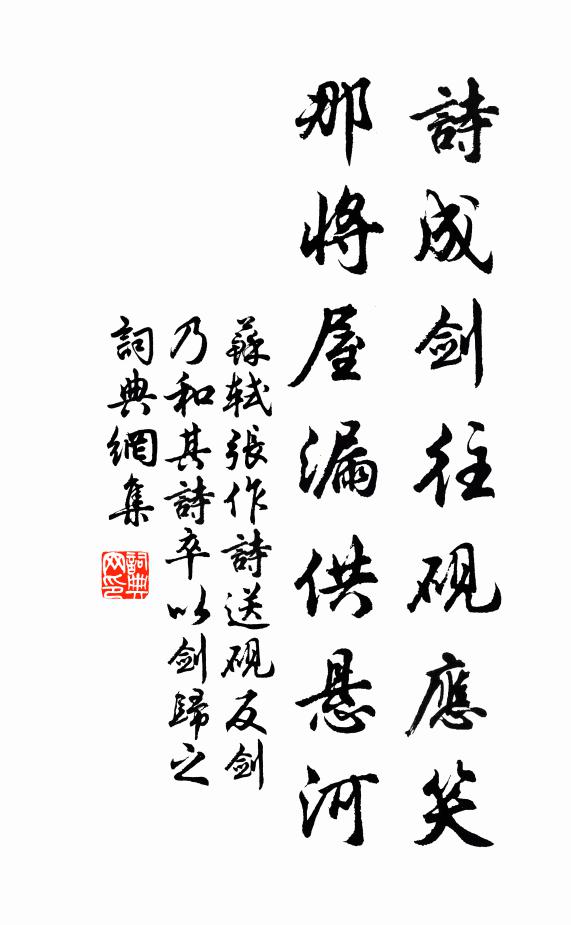 詩成剑往砚應笑
那將屋漏供悬河
蘇轼張作詩送砚反剑
乃和其詩卒以剑歸之
詞典網集
詞典
网印